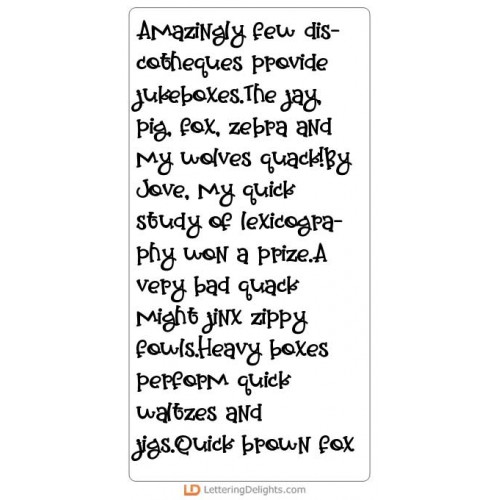 Amazingly few dis-
cotheques provide
jukeboxes.The jay,
pig, fox, zebra and
my wolves quack!By
Jove, my quick
study of lexicogra-
phy won a prize.A
very bad quack
might jinx zippy
fowls.Heavy boxes
perform quick
waltzes and
jigs.Quick brown fox
LD LetteringDelights.com